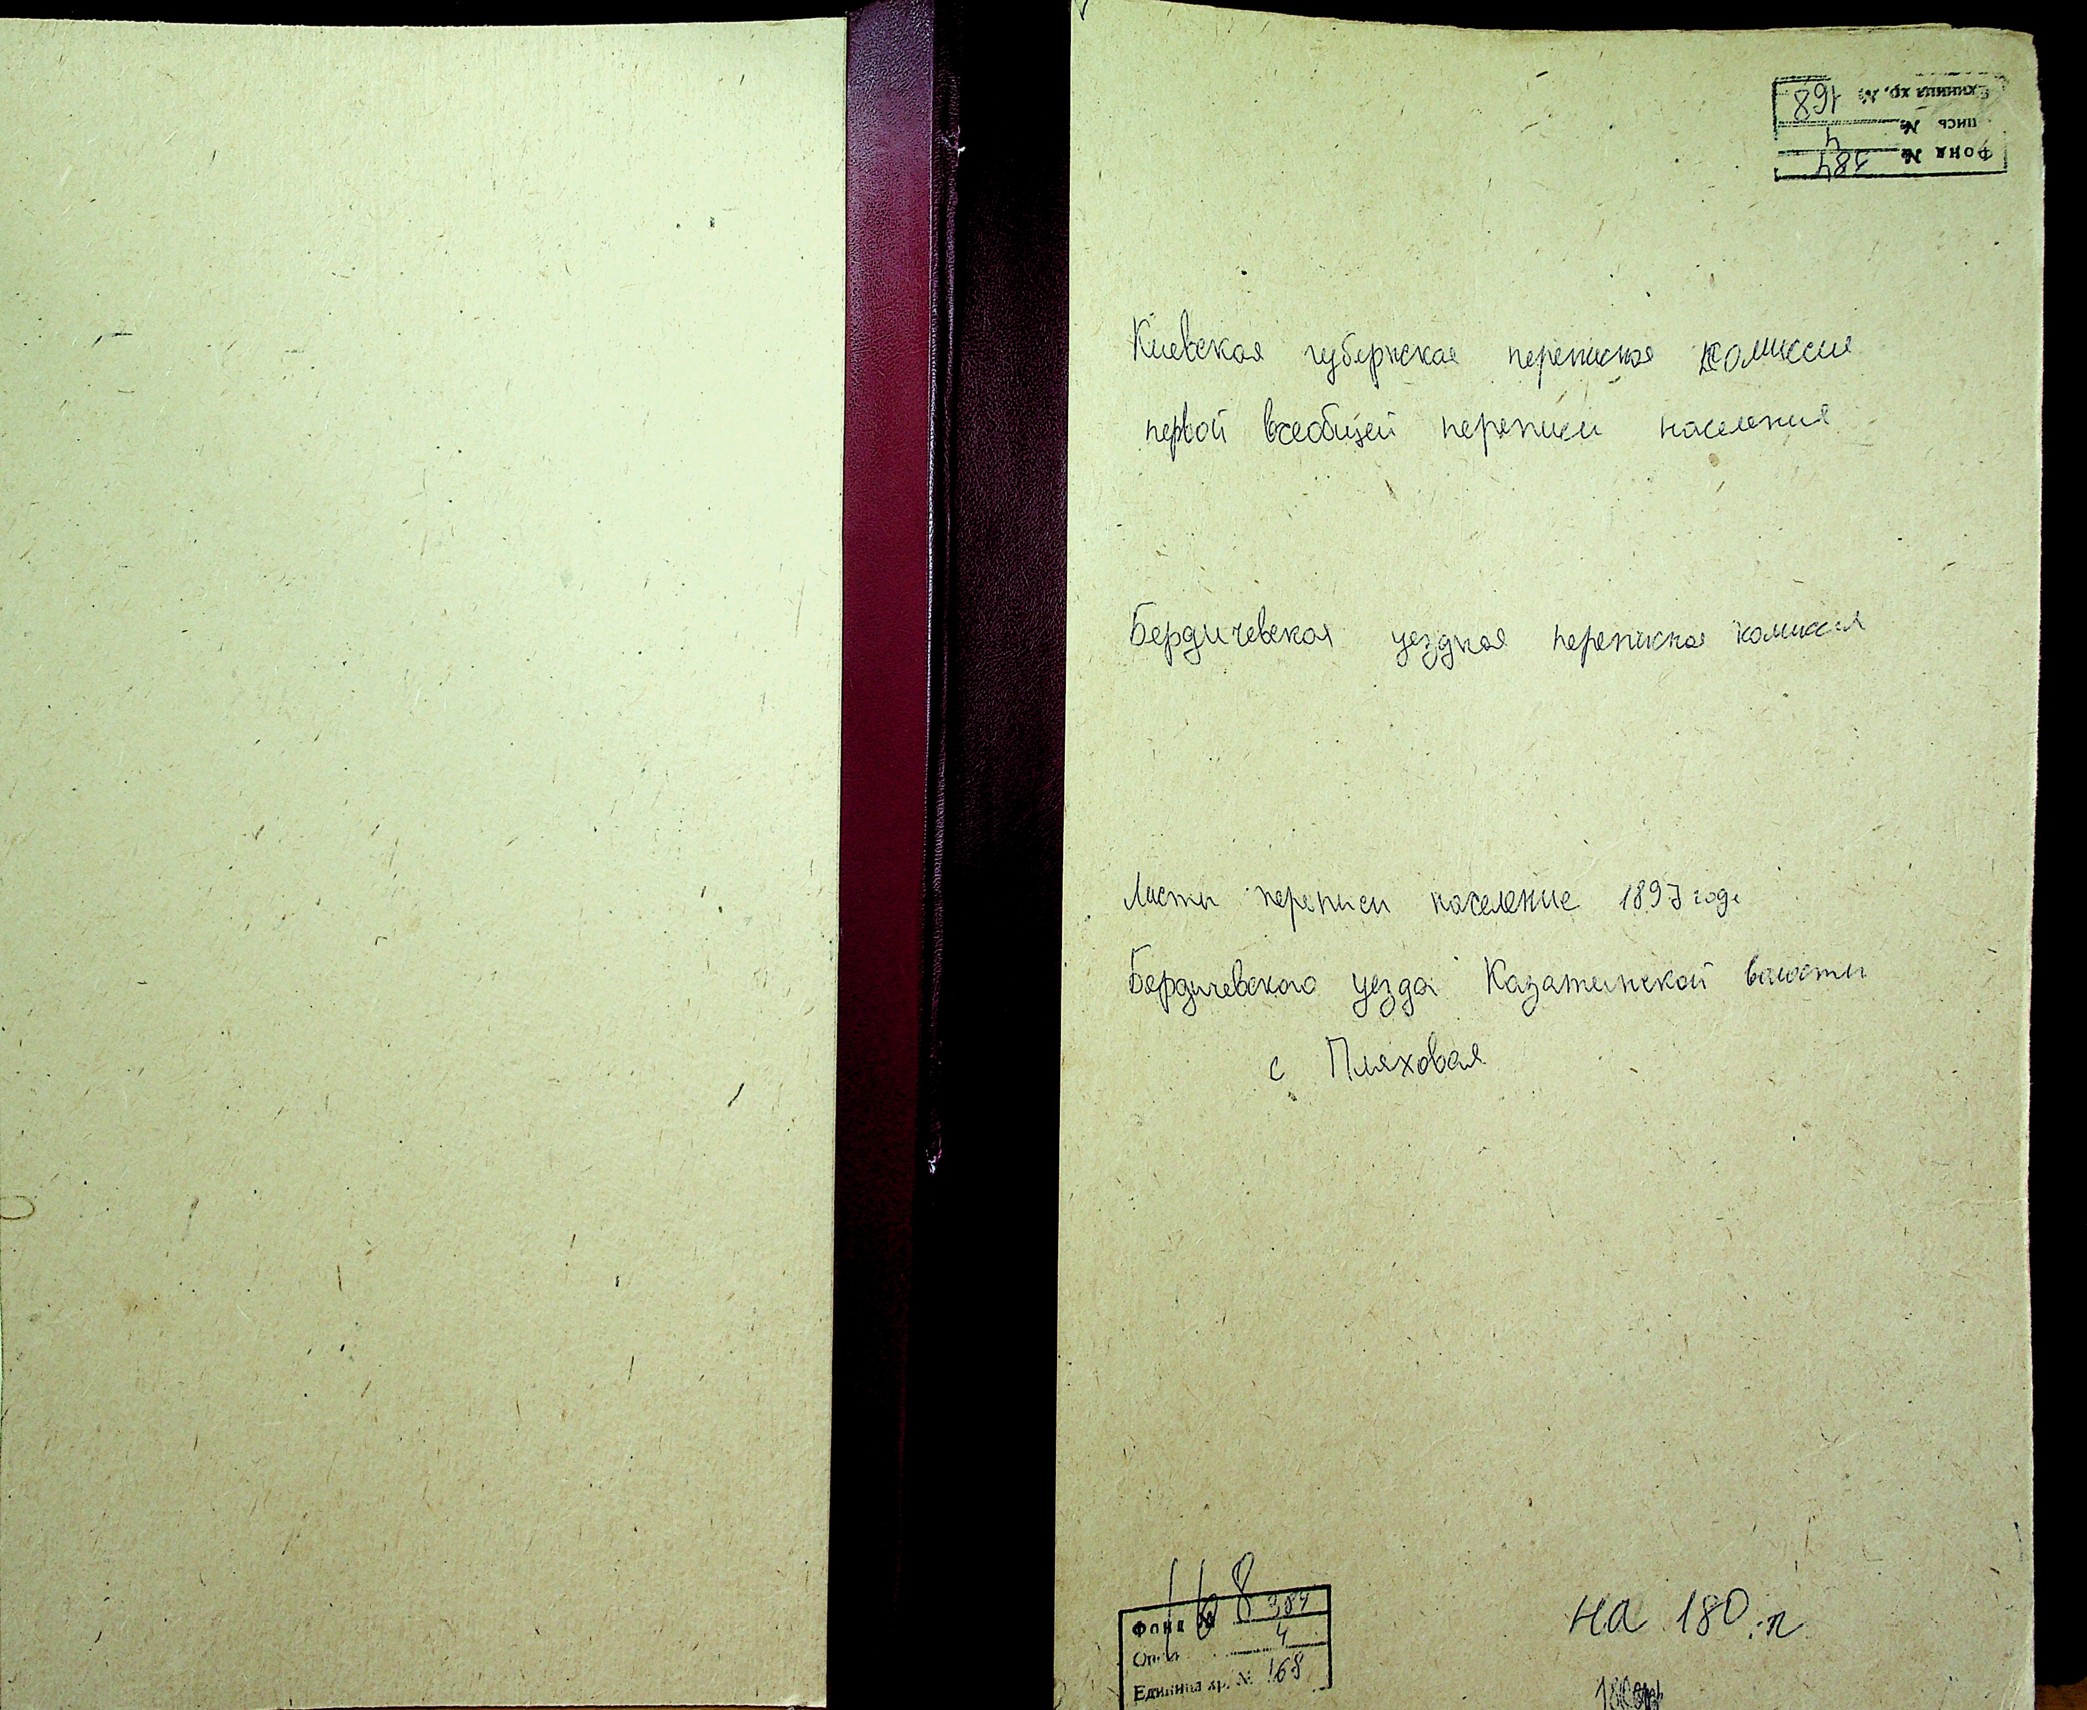 Единица хр. № 168
пись № 4
Фонд № 384
Киевская губернская переписная комиссия
первой всеобщей переписи населения
Бердичевская уездная переписная комиссия
Листы переписи население 1897 года
Бердичевского уезда Казатинской волости
с Пляховая
168
Фонд № 384
Опись 4
Единица хр. № 168
на 180 л